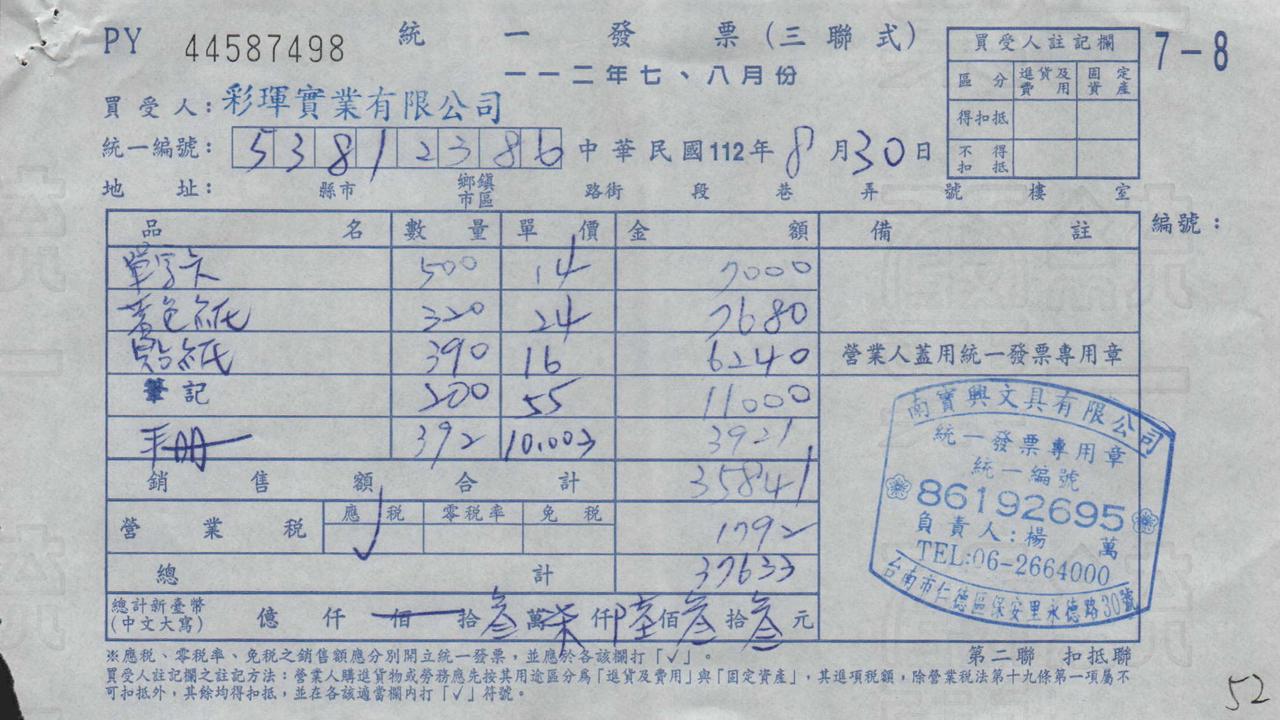 PY 44587498 統一發票(三聯式)
一一二年七、八月份
買受人註記欄 7-8
區分 進貨及費用 固定資產
得扣抵
不得扣抵
買受人:彩琿實業有限公司
統一編號: 53812386 中華民國112年8月30日
地址: 縣市 鄉鎮市區 路街 段 巷 弄 號 樓 室
品名 數量 單價 金額 備註 編號:
單字卡 500 14 7000
黃色紙 320 24 7680
貼紙 390 16 6240 營業人蓋用統一發票專用章
筆記 200 55 11000
手冊 392 10.003 3921
銷售額合計 35841
營業稅 應稅 零稅率 免稅 1792
√
總計 37633
總計新臺幣(中文大寫) 億 仟 佰 拾叁萬柒仟陸佰叁拾叁元
南寶興文具有限公司
統一發票專用章
統一編號
86192695
負責人:楊 萬
TEL:06-2664000
台南市仁德區保安里永德路30號
※應稅、零稅率、免稅之銷售額應分別開立統一發票,並應於各該欄打「√」。 第二聯 扣抵聯
買受人註記欄之註記方法:營業人購進貨物或勞務應先按其用途區分為「進貨及費用」與「固定資產」,其進項稅額,除營業稅法第十九條第一項屬不
可扣抵外,其餘均得扣抵,並在各該適當欄內打「√」符號。
52